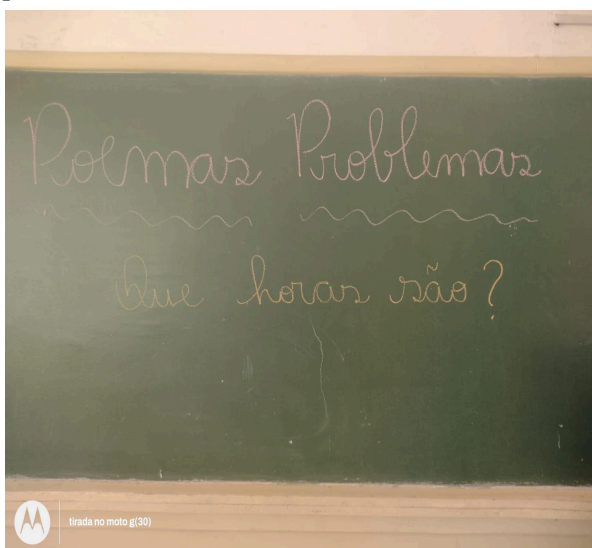 Poemas Problemas
Que horas são?
tirada no moto g(30)